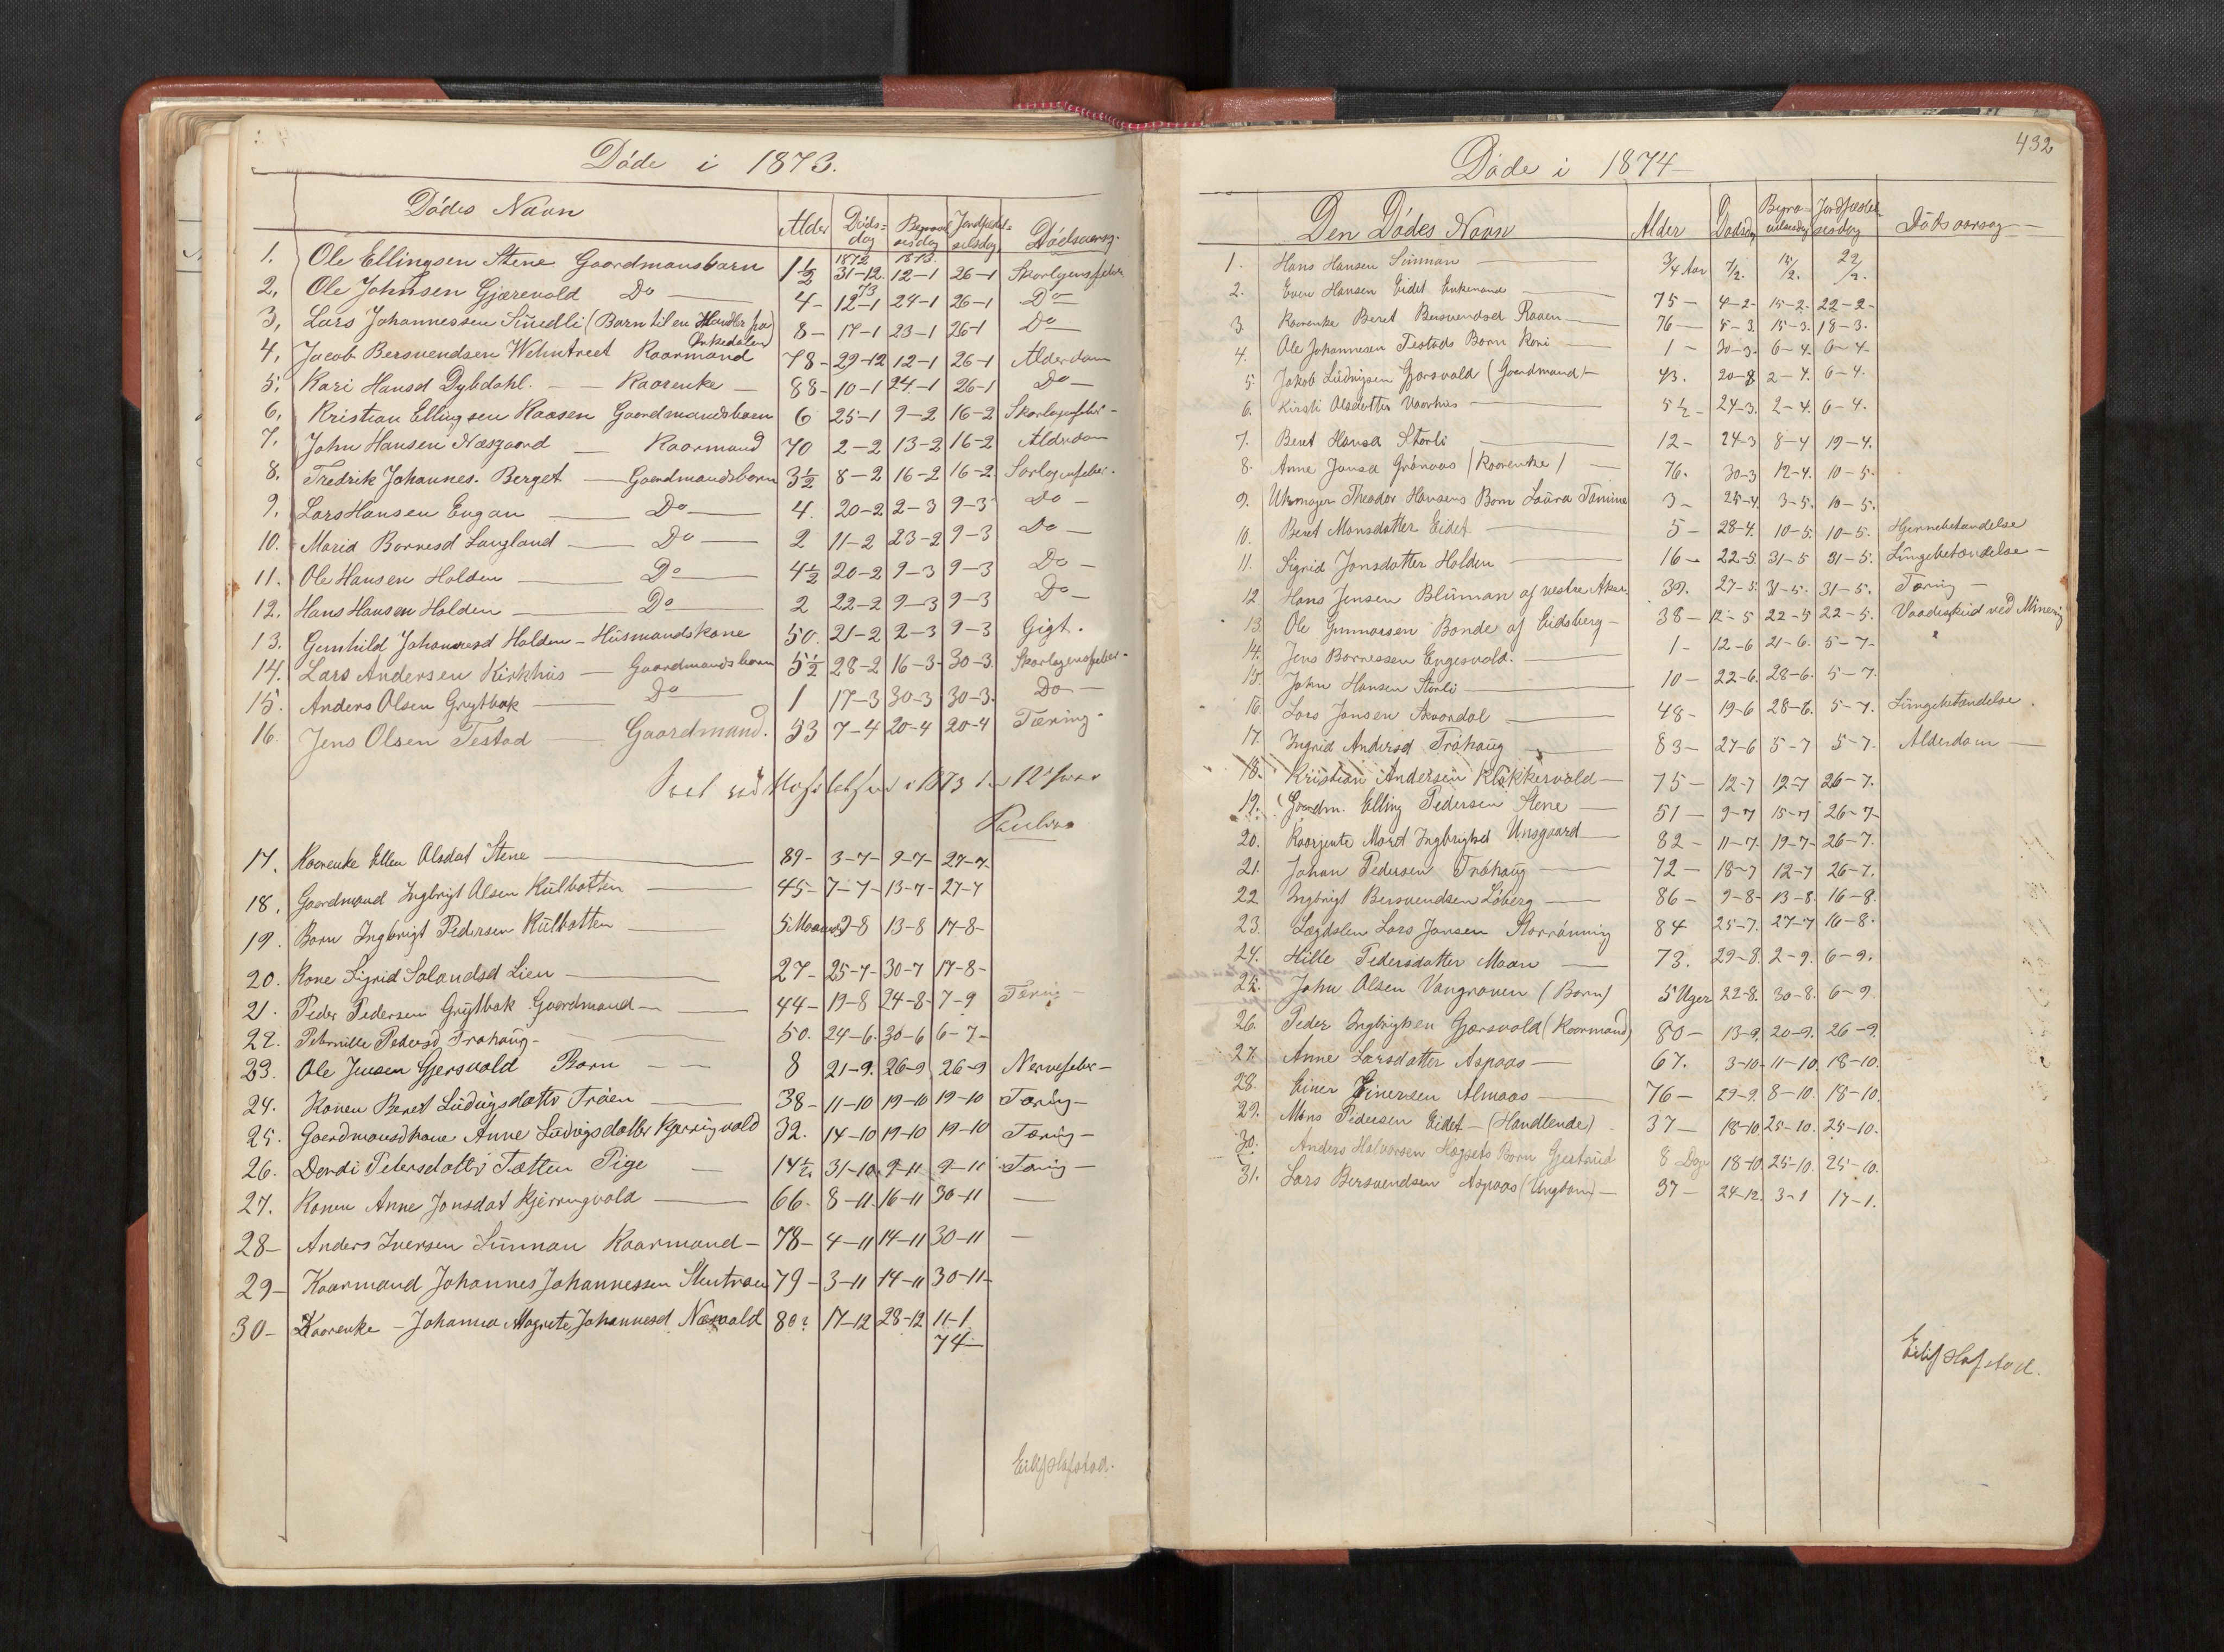 Døde i 1873.
Dødes Navn Alder Døds=dag Begravelsesdag Jordfæstelsesdag Dødsaarsag.
1. Ole Ellingsen Stene Gaardmansbarn 1½ 1872 31-12. 1873. 12-1 26-1 Skarlagensfeber
2, Ole Johnsen Gjærevold Do 4- 73 12-1 24-1 26-1 Do
3, Lars Johannessen Sinedli (Barn til en Handler fra Orkedalen) 8- 17-1 23-1 26-1 Do
4, Jacob Bersvendsen Wehntreet Kaarmand 78- 29-12 12-1 26-1 Alderdom
5, Kari Hansd Dybdahl. - - Kaarenke - 88- 10-1 24-1 26-1 Do -
6, Kristian Ellingsen Haasen Gaardmandsbarn 6 25-1 9-2 16-2 Skarlagensfeber-
7, John Hansen Næsgaard - Kaarmand 70 2-2 13-2 16-2 Alderdom
8, Fredrik Johannes. Berget - Gaardmandsbarn 3½ 8-2 16-2 16-2 Sarlagensfeber.
9, Lars Hansen Engan Do 4. 20-2 2-3 9-3 Do -
10. Marid Bornesd Langland Do 2 11-2 23-2 9-3 Do -
11. Ole Hansen Holden Do 4½ 20-2 9-3 9-3 Do -
12. Hans Hansen Holden Do 2 22-2 9-3 9-3 Do -
13. Gunhild Johannesd Holden - Husmandskone 50. 21-2 2-3 9-3 Gigt.
14. Lars Andersen Kirkhus - Gaardmandsbarn 5½ 28-2 16-3- 30-3. Skarlagensfeber-
15. Anders Olsen Grytbak Do 1 17-3 30-3 30-3. Do -
16. Jens Olsen Testad Gaardmand. 53 7-4 20-4 20-4 Tæring-
17. Kaarenke Ellen Olsdat Stene 89- 3-7- 9-7- 27-7.
18. Gaardmand Ingbrigt Olsen Kulbotten 45- 7-7- 13-7- 27-7
19. Barn Ingbrigt Pedersen Kulbotten 5 Maaned 9-8 13-8 17-8-
20. Kone Sigrid Salandsd Lien 27- 25-7- 30-7 17-8-
21. Peder Pedersen Grytbak Gaardmand 44- 19-8 24-8- 7-9 Tæring -
22. Peternille Pedersd Trøhaug - 50. 24-6. 30-6 6-7-
23. Ole Jensen Gjersvold Barn 8 21-9. 26-9 26-9 Nervefeber-
24. Konen Beret Ludvigsdatter Trøen 38- 11-10 19-10 19-10 Tæring-
25. Gaardmandskone Anne Ludvigsdatter Kjerringvold 32. 14-10 19-10 19-10 Tæring-
26. Dordi Petersdatter Tøtten Pige 14½ 31-10. 9-11 9-11 Tæring-
27. Konen Anne Jonsdat Kjerringvold 66. 8-11. 16-11 30-11 -
28- Anders Iversen Sunnan Kaarmand- 78- 4-11 14-11 30-11 -
29- Kaarmand Johannes Johannessen 79- 3-11 14-11 30-11-
30- Kaarenke - Johanna Magrete Johannesd 80? 17-12 28-12 11-1 74-
Eilif Hofstad.
432
Døde i 1874
Den Dødes Navn Alder Dødsdag Begravelsesdag Jordfæstelsesdag Dødsaarsag
1. Hans Hansen Sunnan 3/4 Aar 7/2. 15/2. 22/2.
2. Even Hansen Eidet Enkemand 75- 4-2- 15-2- 22-2-
3. Kaarenke Beret Bersvendsd Raaen 76- 5-3. 15-3. 18-3.
4. Ole Johannesen Testads Barn Kari 1- 30-3. 6-4. 6-4.
5. Jakob Ludvigsen Gjersvold (Gaardmand)- 43. 20-3 2-4. 6-4.
6. Kirsti Olsdatter Vaarhus 5½- 24-3. 2-4. 6-4.
7. Beret Hansd Storli 12- 24-3 8-4 19-4.
8. Anne Jonsd Grønaas (Kaarenke) 76. 30-3 12-4. 10-5.
9. Uhrmager Theodor Hansens Barn Laura 3- 25-4. 3-5. 10-5.
10. Beret Monsdatter Eidet 5- 28-4. 10-5. 10-5. Hjernebetændelse
11. Sigrid Jonsdatter Holden 16- 22-5. 31-5 31-5. Lungebetændelse-
12. Hans Jensen Bluman af vestre Aker. 39. 27-5. 31-5. 31-5. Tæring -
13. Ole Gunnarsen Bonde af Eidsberg- 38- 12-5 22-5 22-5. Vaadeskud ved Minering
14. Jens Bornessen Engesvold. 1- 12-6 21-6. 5-7-
15. John Hansen Storli 10- 22-6. 28-6. 5-7.
16. Lars Jonsen Skaardal 48- 19-6 28-6. 5-7. Lungebetændelse.
17. Ingrid Andersd Trøhaug 83- 27-6 5-7 5-7. Alderdom -
18. Kristian Andersen Klokkervold 75- 12-7 19-7 26-7.
19. Gaardm. Elling Pedersen Stene 51- 9-7 15-7 26-7-
20. Kaarjente Marit Ingbrigtsd Unsgaard 82- 11-7. 19-7- 26-7.
21. Johan Pedersen Trøhaug 72- 18-7 12-7 26-7.
22 Ingbrigt Bersvendsen Løberg 86- 9-8- 13-8. 16-8.
23. Lægdslem Lars Jonsen Storrønning 84 25-7. 27-7 16-8.
24. Hille Pedersdatter Moan 73. 29-8. 2-9. 6-9.
25. John Olsen Vangraven (Barn) 5 Uger 22-8. 30-8. 6-9
26. Peder Ingbrigtsen Gjersvold (Kaarmand) 80- 13-9. 20-9. 26-9.
27. Anne Larsdatter Aspaas 67. 3-10. 11-10. 18-10.
28. Einer Einersen Almaas 76- 29-9. 8-10. 18-10.
29. Mons Pedersen Eidet - (Handlende) 37- 18-10. 25-10. 25-10.
30. Anders Halvorsen Barn 8 Dage 18-10. 25-10. 25-10.
31. Lars Bersvendsen Aspaas (Ungdom)- 37- 24-12. 3-1 17-1.
Eilif Hofstad.